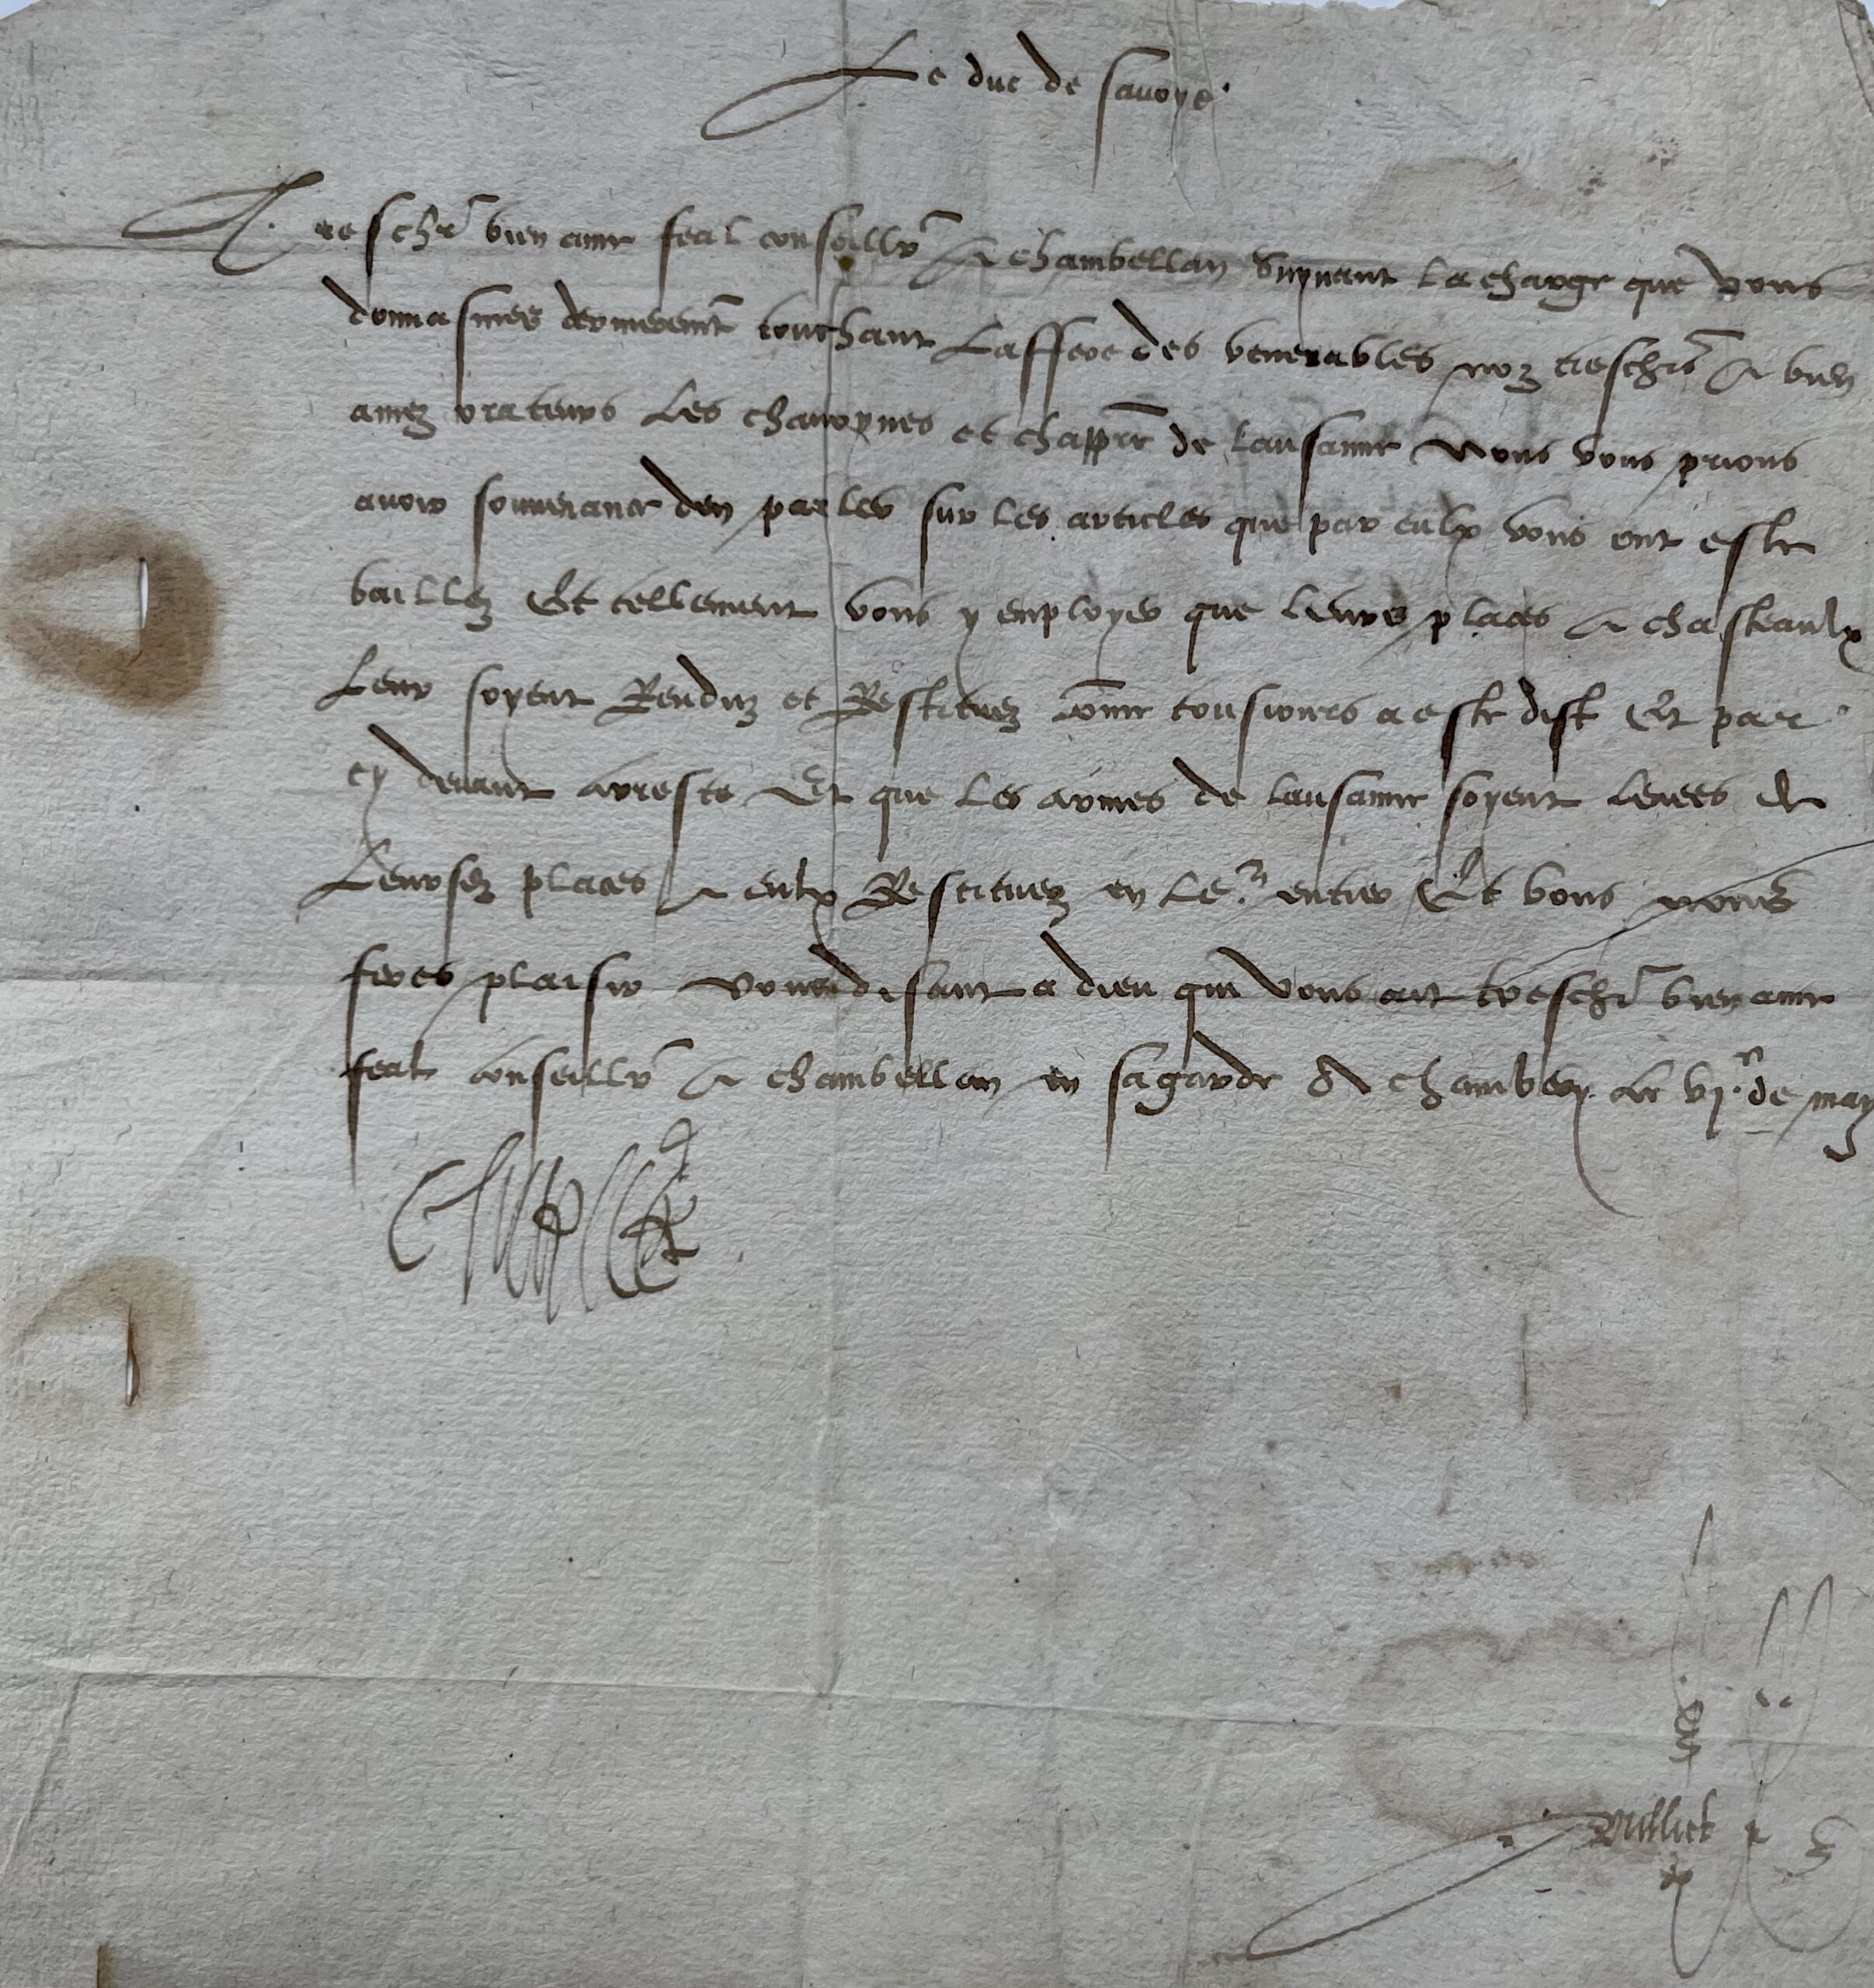 Le duc de savoye
Treschr bien ame feal conseillr et chambellan Suyuant la charge que vous
donnasmes dernieremt touchant Laffere des venerables noz treschrs et bien
amez orateurs Les chanoynes et chappre de Lausanne Nous vous prions
auoir souuenance den parler sur les articles que par eulx vous ont este
baillez Et tellement vous y employer que leurs places et chasteaulx
Leur soyent Renduz et Restituez come tousiours a este dist Et par
cy deuant arreste Et que Les armes de Lausanne soyent leuees de
Leursdz places et eulx Restituez en Le.r entier Et vous nous
feres plaisir Vous disant a dieu qui vous ait treschr bien ame
feal conseillr et chambellan en sa garde De chambery le vj.e de may
Charles
Milliet